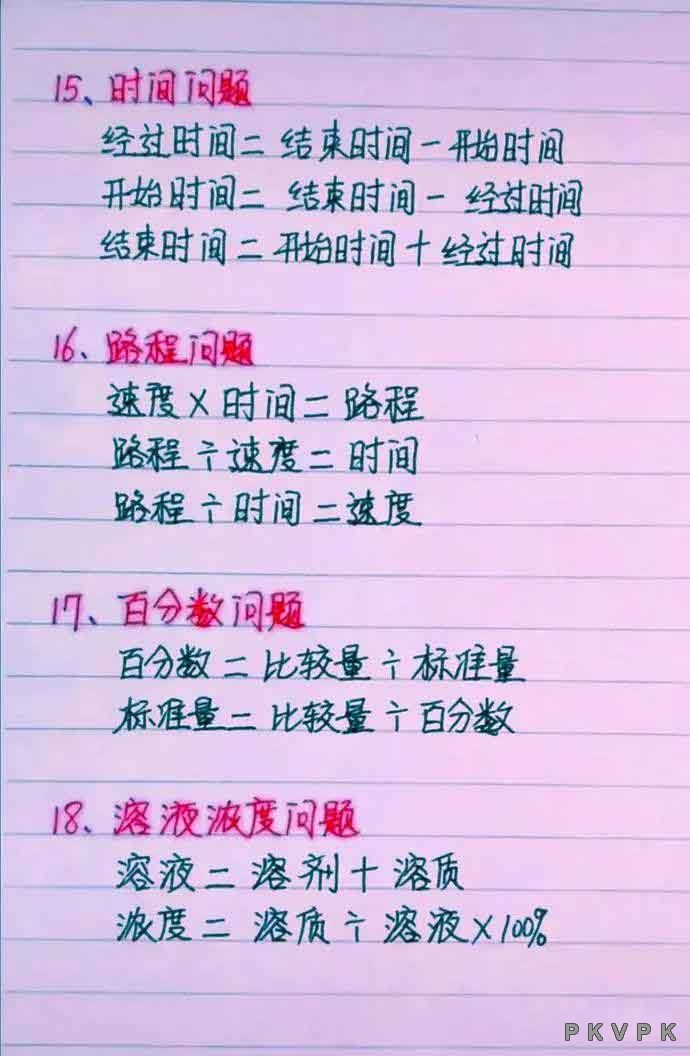 15、时间问题
经过时间=结束时间-开始时间
开始时间=结束时间-经过时间
结束时间=开始时间+经过时间
16、路程问题
速度×时间=路程
路程÷速度=时间
路程÷时间=速度
17、百分数问题
百分数=比较量÷标准量
标准量=比较量÷百分数
18、溶液浓度问题
溶液=溶剂+溶质
浓度=溶质÷溶液×100%
PKVPK